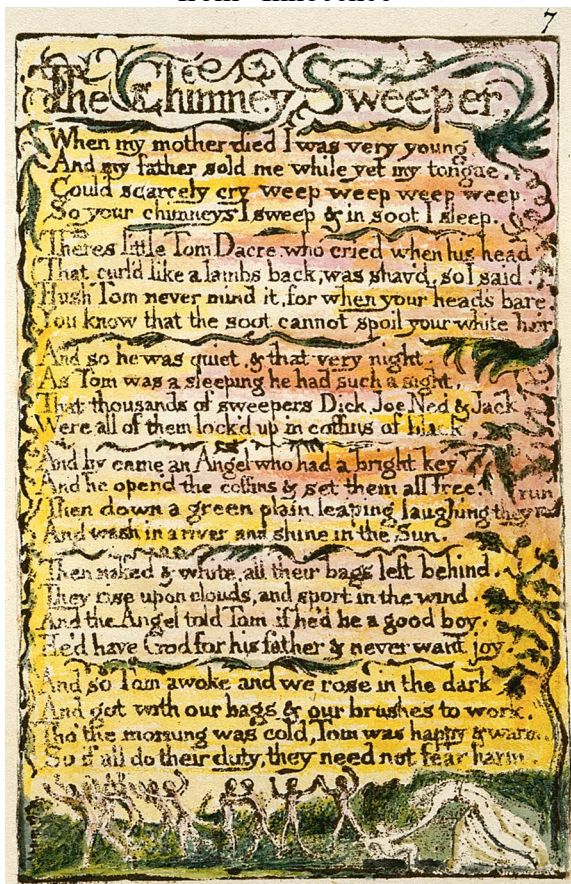 from "Innocence"
7
The Chimney Sweeper
When my mother died I was very young
And my father sold me while yet my tongue.
Could scarcely cry weep weep weep weep.
So your chimneys I sweep & in soot I sleep.
Theres little Tom Dacre who cried when his head
That curl'd like a lambs back, was shav'd, so I said.
Hush Tom never mind it, for when your head's bare
You know that the soot cannot spoil your white hair
And so he was quiet, & that very night.
As Tom was a sleeping he had such a sight,
That thousands of sweepers Dick, Joe, Ned & Jack
Were all of them lock'd up in coffins of black
And by came an Angel who had a bright key
And he open'd the coffins & set them all free.
Then down a green plain leaping laughing they run
And wash in a river and shine in the Sun.
Then naked & white, all their bags left behind.
They rise upon clouds, and sport in the wind.
And the Angel told Tom if he'd be a good boy,
He'd have God for his father & never want joy.
And so Tom awoke and we rose in the dark
And got with our bags & our brushes to work.
Tho' the morning was cold, Tom was happy & warm.
So if all do their duty, they need not fear harm.